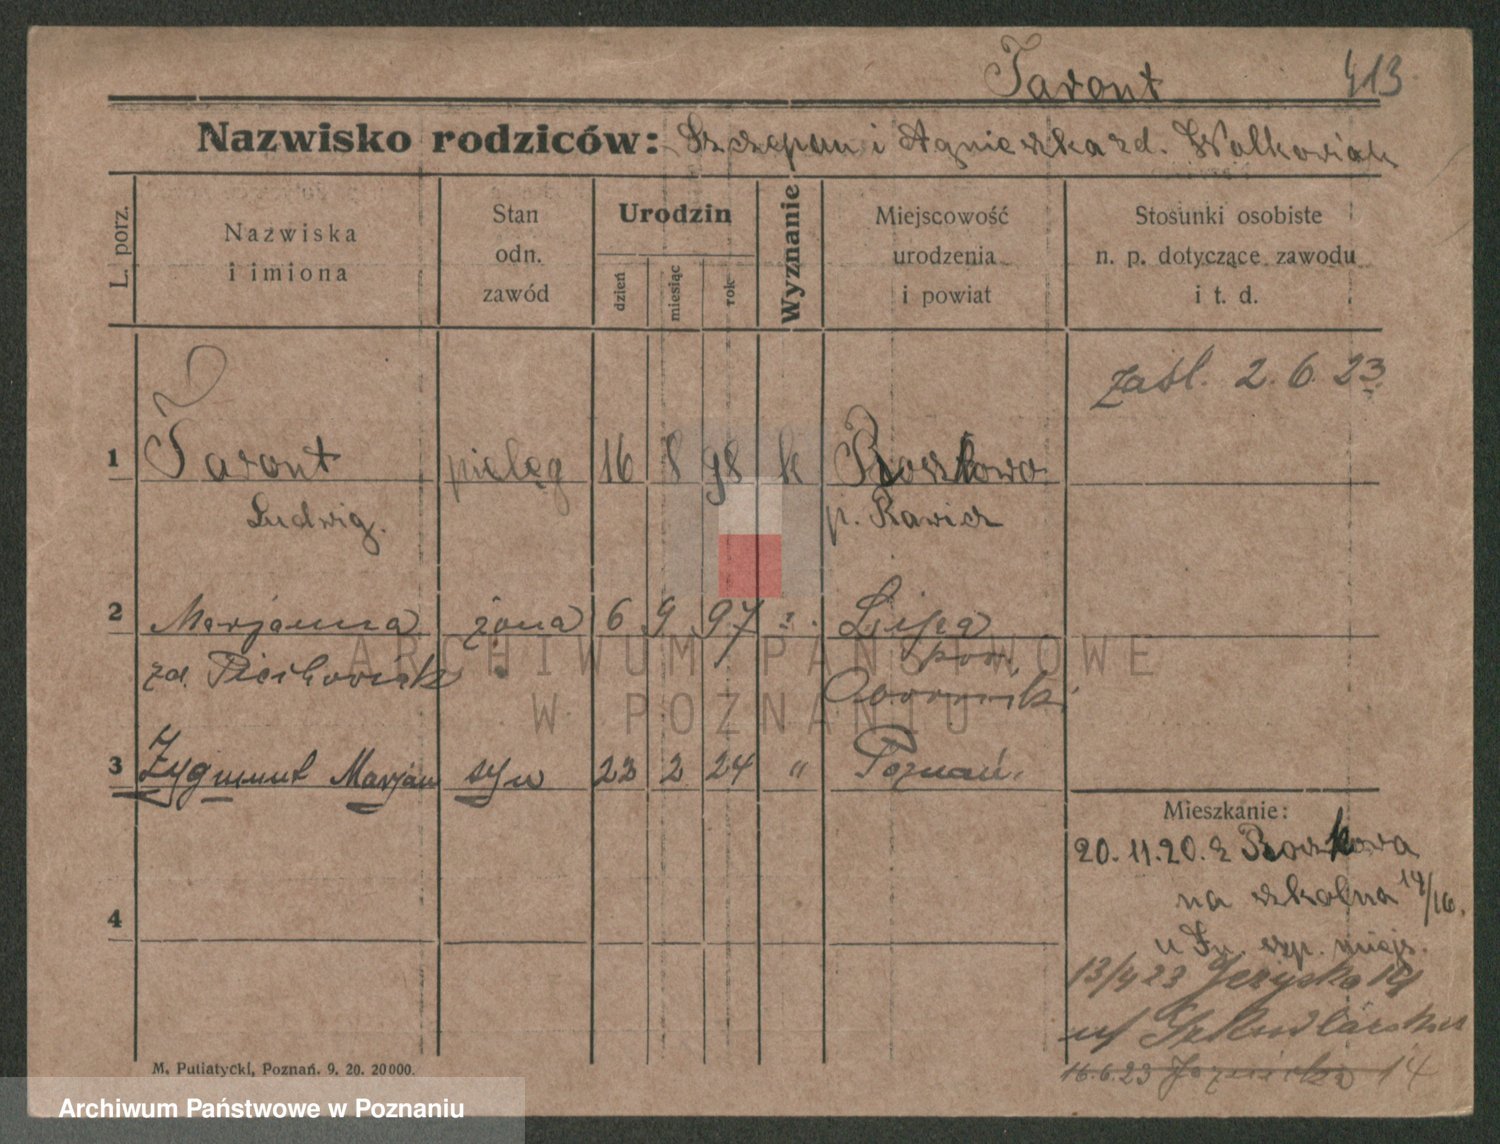 Taront 413
Nazwisko rodziców: Szczepan i Agnieszka zd. Walkowiak
L. porz.
Nazwiska
i imiona
Stan
odn.
zawód
Urodzin
dzień
miesiąc
rok
Wyznanie
Miejscowość
urodzenia
i powiat
Stosunki osobiste
n. p. dotyczące zawodu
i t. d.
zaśl. 2.6.23.
1 Taront pielęg 16 8 98 k Roszkowo
Ludwig. p. Rawicz
2 Marjanna żona 6 9 97 " Lipa
zd. Piechowiak pow.
Obornik.
3 Zygmunt Marjan syn 23 2 24 " Poznań.
4
Mieszkanie:
20.11.20. z Roszkowa
na szkolna 14/16.
u szp. miejs.
13/4 23 14
16.6.23 14
M. Putiatycki, Poznań. 9. 20. 20000.
ARCHIWUM PAŃSTWOWE
W POZNANIU
Archiwum Państwowe w Poznaniu